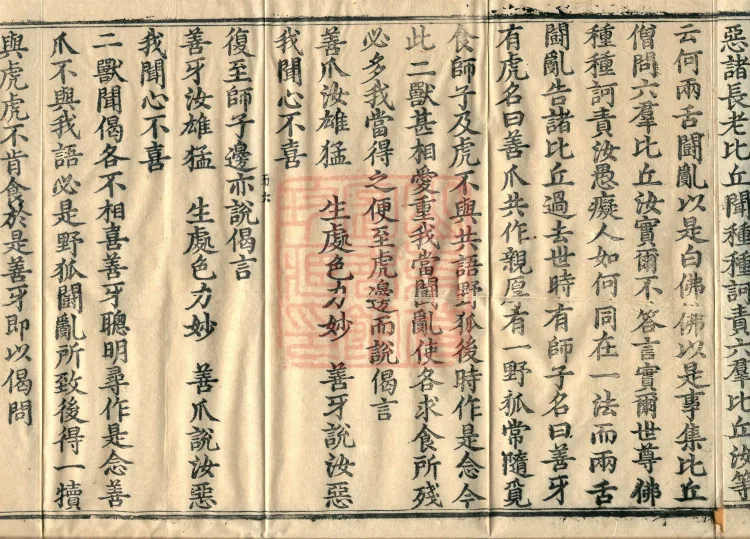 惡諸長老比丘聞種種訶責六羣比丘汝等
云何兩舌鬪亂以是白佛佛以是事集比丘
僧問六羣比丘汝實爾不答言實爾世尊佛
種種訶責汝愚癡人如何同在一法而兩舌
鬪亂告諸比丘過去世時有師子名曰善牙
有虎名曰善爪共作親厚有一野狐常隨覓
食師子及虎不與共語野狐後時作是念今
此二獸甚相愛重我當鬪亂使各求食所殘
必多我當得之便至虎邊而說偈言
善爪汝雄猛 生處色力妙 善牙說汝惡
我聞心不喜
復至師子邊亦說偈言
善牙汝雄猛 生處色力妙 善爪說汝惡
我聞心不喜
二獸聞偈各不相喜善牙聰明尋作是念善
爪不與我語必是野狐鬪亂所致後得一犢
與虎虎不肯食於是善牙即以偈問